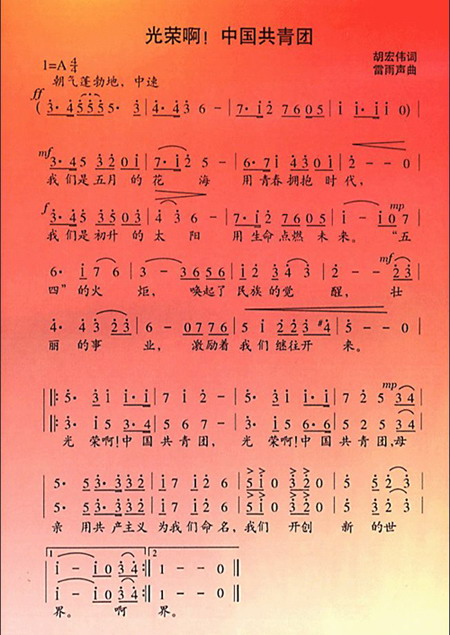 光荣啊！中国共青团
1=A 4/4
胡宏伟词
朝气蓬勃地，中速
雷雨声曲
ff
(3· 4 5 5 5 5· 5 | 3· 4 3 4 6 - | 7· i 2 7 6 0 5 | i i i i 0)
mf
3· 4 5 3 2 0 1 | 7· i 2 5 - | 6· 7 i 4 3 0 1 | 2 - - 0 |
我们是五月的花海 用青春拥抱时代，
f mp
3· 4 5 3 2 0 1 | 4· 3 6 - | 7· i 2 7 6 0 5 | i - i 0 7 |
我们是初升的太阳 用生命点燃未来。“五
mf
6· i 7 6 | 3 - 3 6 5 6 | i 2 3 4 3 | 2 - - 2 3 |
四”的火炬，唤起了民族的觉醒，壮
4· 4 2 3 | 6 - 0 7 7 6 | 5 i 0 i 2 3 #4 | 5 - - 0 |
丽的事业，激励着我们继往开来。
mp
5· 3 i i· i | 7 i 2 - | 5· 3 i i· i | 7 2 5 3 4 |
3· i 5 3· 4 | 5 6 7 - | 3· i 5 3· 4 | 5 7 5 3 4 |
光荣啊！中国共青团，光荣啊！中国共青团，母
5· 5 3 3 3 2 | 2 i 2 3 - | 5 i 0 3 3 2 | 2 5 3 4 |
亲用共产主义为我们命名，我们开创新的世
1 2
i - i 0 3 4 :‖ 1 - - 0 ‖
i - i 0 3 4 :‖ 1 - - 0 ‖
界。啊界。